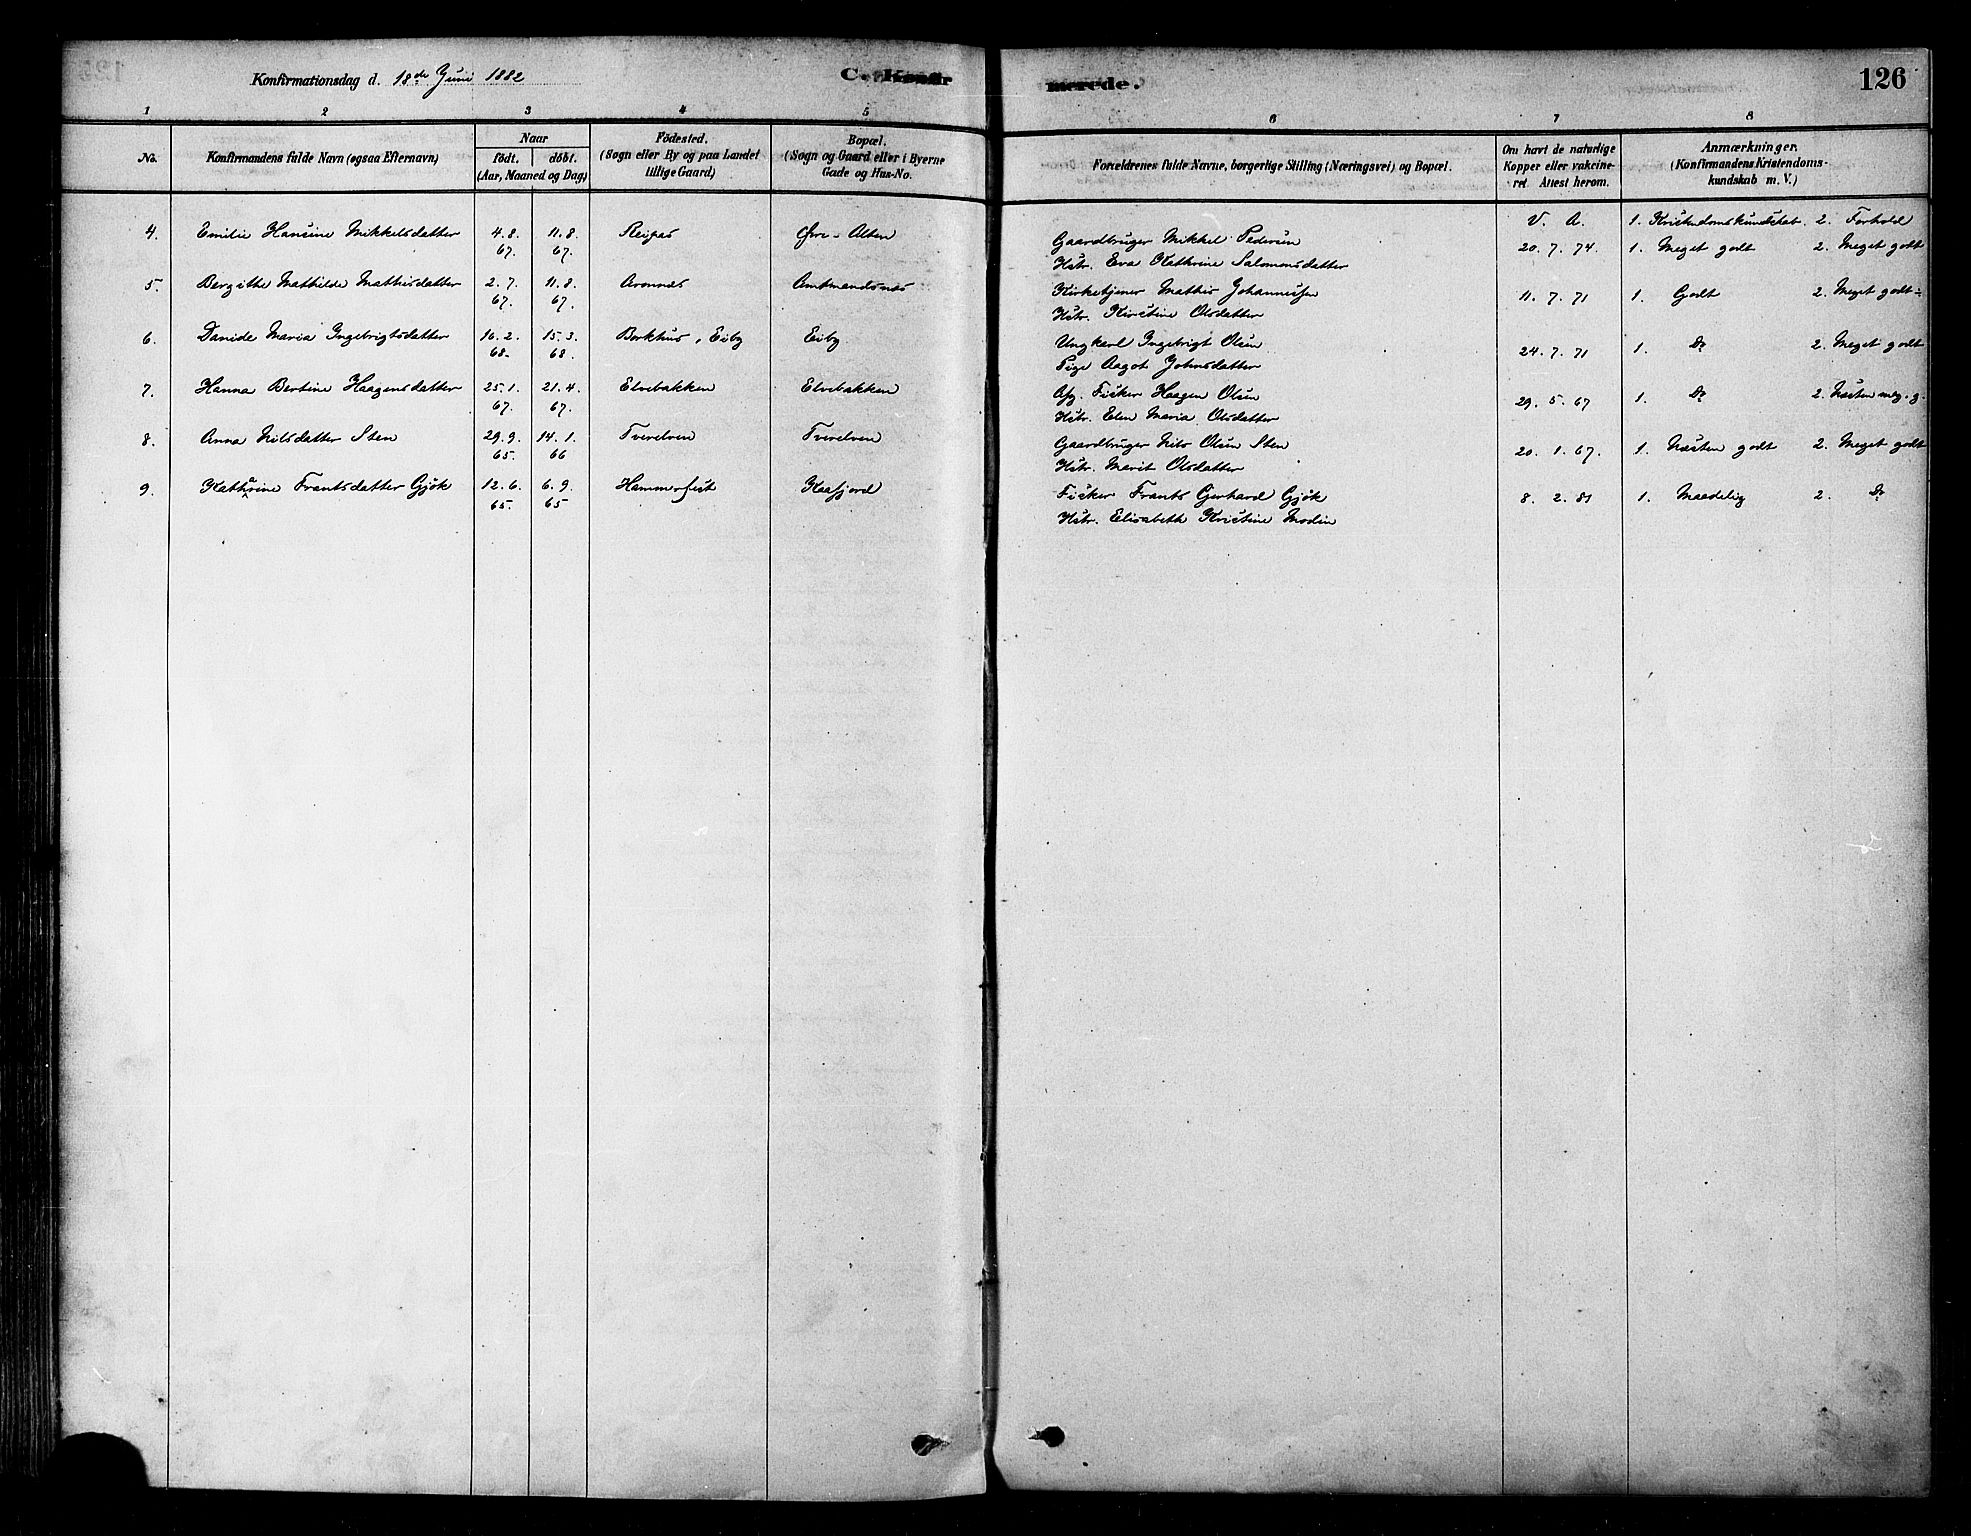 Konfirmationsdag d. 18de Juni 1882
C. Konfirmerede.
126
1 2 3 4 5 6 7 8
No.
Konfirmandens fulde Navn (ogsaa Efternavn)
Naar
födt. döbt.
(Aar, Maaned og Dag)
Födested.
(Sogn eller By og paa Landet
tillige Gaard)
Bopæl.
(Sogn og Gaard eller i Byerne
Gade og Hus-No.
Forældrenes fulde Navne, borgerlige Stilling (Næringsvei) og Bopæl.
Om havt de naturlige
Kopper eller vakcine-
ret Attest herom.
Anmærkninger.
(Konfirmandens Kristendoms-
kundskab m. V.)
V. A. 1. Kristendomskundskab. 2. Forhold
4. Emilie Hansine Mikkelsdatter 4.8. 67. 11.8. 67. Reipas Øvre-Alten Gaardbruger Mikkel Pedersen 20.7.74. 1. Meget godt 2. Meget godt
Hstr. Eva Kathrine Salomonsdatter
5. Bergithe Mathilde Mathisdatter 2.7. 67. 11.8. 67. Aronnæs Amtmandsnæs Kirketjener Mathis Johannessen 11.7.71 1. Godt 2. Meget godt
Hstr. Kirstine Olsdatter
6. Danide Maria Ingebrigtsdatter 16.2. 68. 15.3. 68. Borkhus, Eiby Eiby Ungkarl Ingebrigt Olsen 24.7.71 1. Do 2. Meget godt
Pige Aagot Johnsdatter
7. Hanna Bertine Haagensdatter 25.1. 67. 21.4. 67. Elvebakken Elvebakken Afg. Fisker Haagen Olsen 29.5.67 1. Do 2. Næsten meg. g.
Hstr. Elen Maria Olsdatter
8. Anna Nilsdatter Sten 29.9. 65. 14.1. 66 Tverelven Tverelven Gaardbruger Nils Olsen Sten 20.1.67. 1. Næsten godt 2. Meget godt
Hstr. Marit Olsdatter
9. Kathrine Frantsdatter Gjøk 12.6. 65. 6.9. 65 Hammerfest Kaafjord Fisker Frants Gerhard Gjøk 8.2.81 1. Maadelig 2. Do
Hstr. Elisabeth Kristine Modin